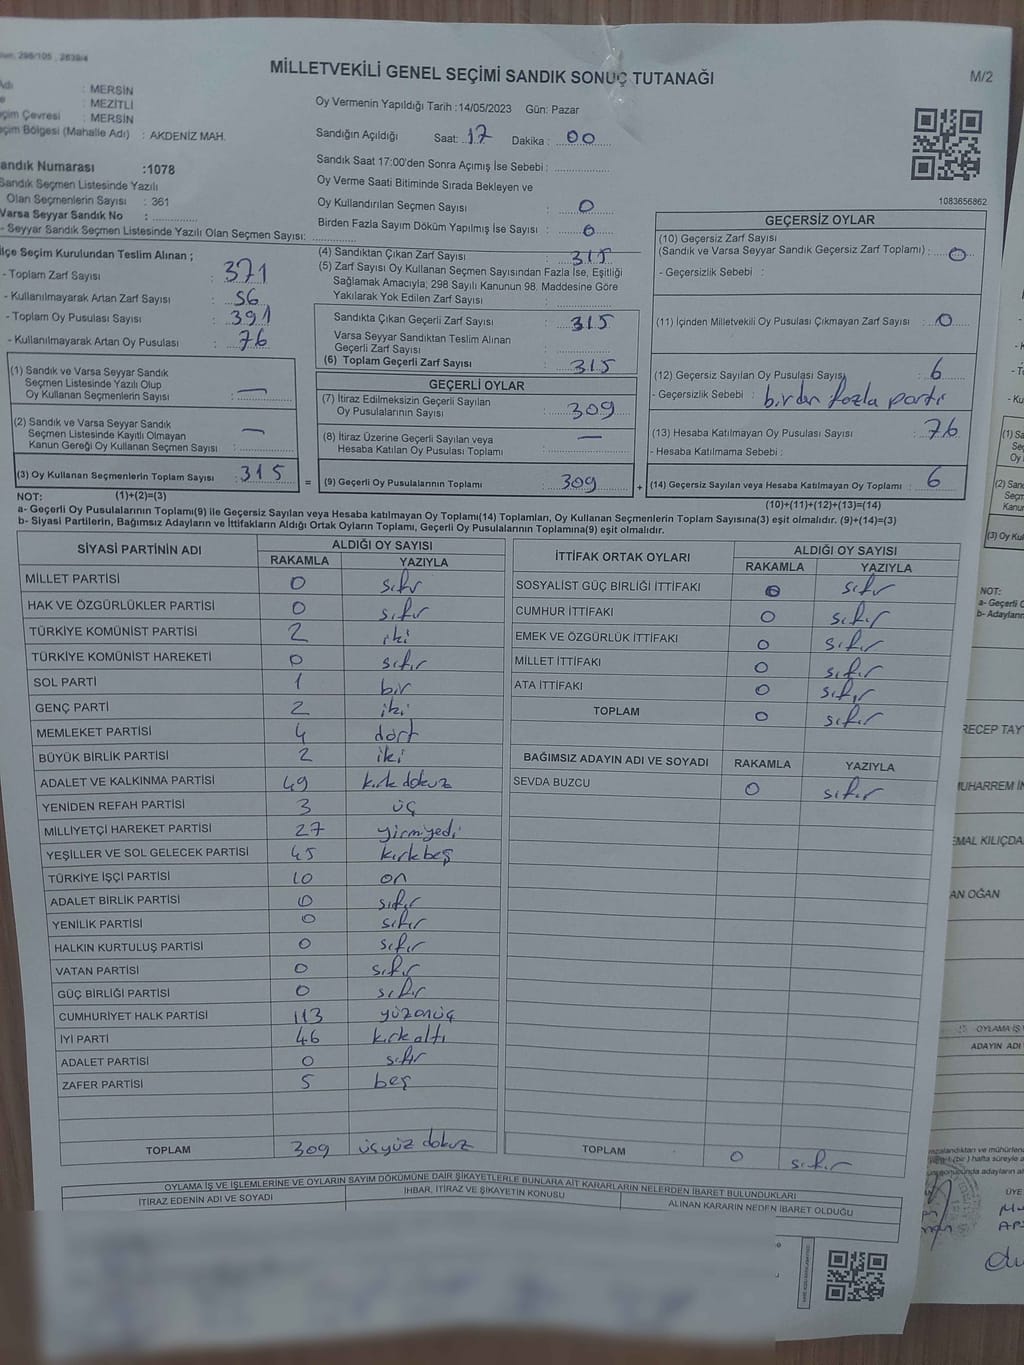 MİLLETVEKİLİ GENEL SEÇİMİ SANDIK SONUÇ TUTANAĞI
M/2
: MERSİN
: MEZİTLİ
: MERSİN
Bölgesi (Mahalle Adı) : AKDENİZ MAH.
Oy Vermenin Yapıldığı Tarih :14/05/2023 Gün: Pazar
Sandığın Açıldığı Saat: 17 Dakika : 00
Sandık Saat 17:00'den Sonra Açımış İse Sebebi :
Oy Verme Saati Bitiminde Sırada Bekleyen ve
Oy Kullandırılan Seçmen Sayısı : 0
Birden Fazla Sayım Döküm Yapılmış İse Sayısı : 0
andık Numarası :1078
Sandık Seçmen Listesinde Yazılı
Olan Seçmenlerin Sayısı : 361
Varsa Seyyar Sandık No :
- Seyyar Sandık Seçmen Listesinde Yazılı Olan Seçmen Sayısı:
lçe Seçim Kurulundan Teslim Alınan ;
- Toplam Zarf Sayısı : 371
- Kullanılmayarak Artan Zarf Sayısı : 56
- Toplam Oy Pusulası Sayısı : 391
- Kullanılmayarak Artan Oy Pusulası : 76
(1) Sandık ve Varsa Seyyar Sandık
Seçmen Listesinde Yazılı Olup
Oy Kullanan Seçmenlerin Sayısı : —
(2) Sandık ve Varsa Seyyar Sandık
Seçmen Listesinde Kayıtlı Olmayan
Kanun Gereği Oy Kullanan Seçmen Sayısı : —
(3) Oy Kullanan Seçmenlerin Toplam Sayısı : 315
(4) Sandıktan Çıkan Zarf Sayısı : 315
(5) Zarf Sayısı Oy Kullanan Seçmen Sayısından Fazla İse, Eşitliği
Sağlamak Amacıyla; 298 Sayılı Kanunun 98. Maddesine Göre
Yakılarak Yok Edilen Zarf Sayısı :
Sandıkta Çıkan Geçerli Zarf Sayısı : 315
Varsa Seyyar Sandıktan Teslim Alınan
Geçerli Zarf Sayısı :
(6) Toplam Geçerli Zarf Sayısı : 315
GEÇERLİ OYLAR
(7) İtiraz Edilmeksizin Geçerli Sayılan
Oy Pusulalarının Sayısı : 309
(8) İtiraz Üzerine Geçerli Sayılan veya
Hesaba Katılan Oy Pusulası Toplamı : —
= (9) Geçerli Oy Pusulalarının Toplamı : 309 +
1083656862
GEÇERSİZ OYLAR
(10) Geçersiz Zarf Sayısı
(Sandık ve Varsa Seyyar Sandık Geçersiz Zarf Toplamı) : 0
- Geçersizlik Sebebi :
(11) İçinden Milletvekili Oy Pusulası Çıkmayan Zarf Sayısı : 0
(12) Geçersiz Sayılan Oy Pusulası Sayısı : 6
- Geçersizlik Sebebi : birden fazla parti
(13) Hesaba Katılmayan Oy Pusulası Sayısı : 76
- Hesaba Katılmama Sebebi :
(14) Geçersiz Sayılan veya Hesaba Katılmayan Oy Toplamı : 6
NOT: (1)+(2)=(3)
(10)+(11)+(12)+(13)=(14)
a- Geçerli Oy Pusulalarının Toplamı(9) ile Geçersiz Sayılan veya Hesaba Katılmayan Oy Toplamı(14) Toplamları, Oy Kullanan Seçmenlerin Toplam Sayısına(3) eşit olmalıdır. (9)+(14)=(3)
b- Siyasi Partilerin, Bağımsız Adayların ve İttifakların Aldığı Ortak Oyların Toplamı, Geçerli Oy Pusulalarının Toplamına(9) eşit olmalıdır.
SİYASİ PARTİNİN ADI ALDIĞI OY SAYISI
RAKAMLA YAZIYLA
MİLLET PARTİSİ 0 sıfır
HAK VE ÖZGÜRLÜKLER PARTİSİ 0 sıfır
TÜRKİYE KOMÜNİST PARTİSİ 2 iki
TÜRKİYE KOMÜNİST HAREKETİ 0 sıfır
SOL PARTİ 1 bir
GENÇ PARTİ 2 iki
MEMLEKET PARTİSİ 4 dört
BÜYÜK BİRLİK PARTİSİ 2 iki
ADALET VE KALKINMA PARTİSİ 49 kırk dokuz
YENİDEN REFAH PARTİSİ 3 üç
MİLLİYETÇİ HAREKET PARTİSİ 27 yirmiyedi
YEŞİLLER VE SOL GELECEK PARTİSİ 45 kırkbeş
TÜRKİYE İŞÇİ PARTİSİ 10 on
ADALET BİRLİK PARTİSİ 0 sıfır
YENİLİK PARTİSİ 0 sıfır
HALKIN KURTULUŞ PARTİSİ 0 sıfır
VATAN PARTİSİ 0 sıfır
GÜÇ BİRLİĞİ PARTİSİ 0 sıfır
CUMHURİYET HALK PARTİSİ 113 yüzonüç
İYİ PARTİ 46 kırkaltı
ADALET PARTİSİ 0 sıfır
ZAFER PARTİSİ 5 beş
TOPLAM 309 üçyüz dokuz
İTTİFAK ORTAK OYLARI ALDIĞI OY SAYISI
RAKAMLA YAZIYLA
SOSYALİST GÜÇ BİRLİĞİ İTTİFAKI 0 sıfır
CUMHUR İTTİFAKI 0 sıfır
EMEK VE ÖZGÜRLÜK İTTİFAKI 0 sıfır
MİLLET İTTİFAKI 0 sıfır
ATA İTTİFAKI 0 sıfır
TOPLAM 0 sıfır
BAĞIMSIZ ADAYIN ADI VE SOYADI RAKAMLA YAZIYLA
SEVDA BUZCU 0 sıfır
TOPLAM 0 sıfır
OYLAMA İŞ VE İŞLEMLERİNE VE OYLARIN SAYIM DÖKÜMÜNE DAİR ŞİKAYETLERLE BUNLARA AİT KARARLARIN NELERDEN İBARET BULUNDUKLARI
İTİRAZ EDENİN ADI VE SOYADI İHBAR, İTİRAZ VE ŞİKAYETİN KONUSU ALINAN KARARIN NEDEN İBARET OLDUĞU
RECEP TAY
MUHARREM İN
EMAL KILIÇDA
AN OĞAN
OYLAMA İŞ
ADAYIN ADI